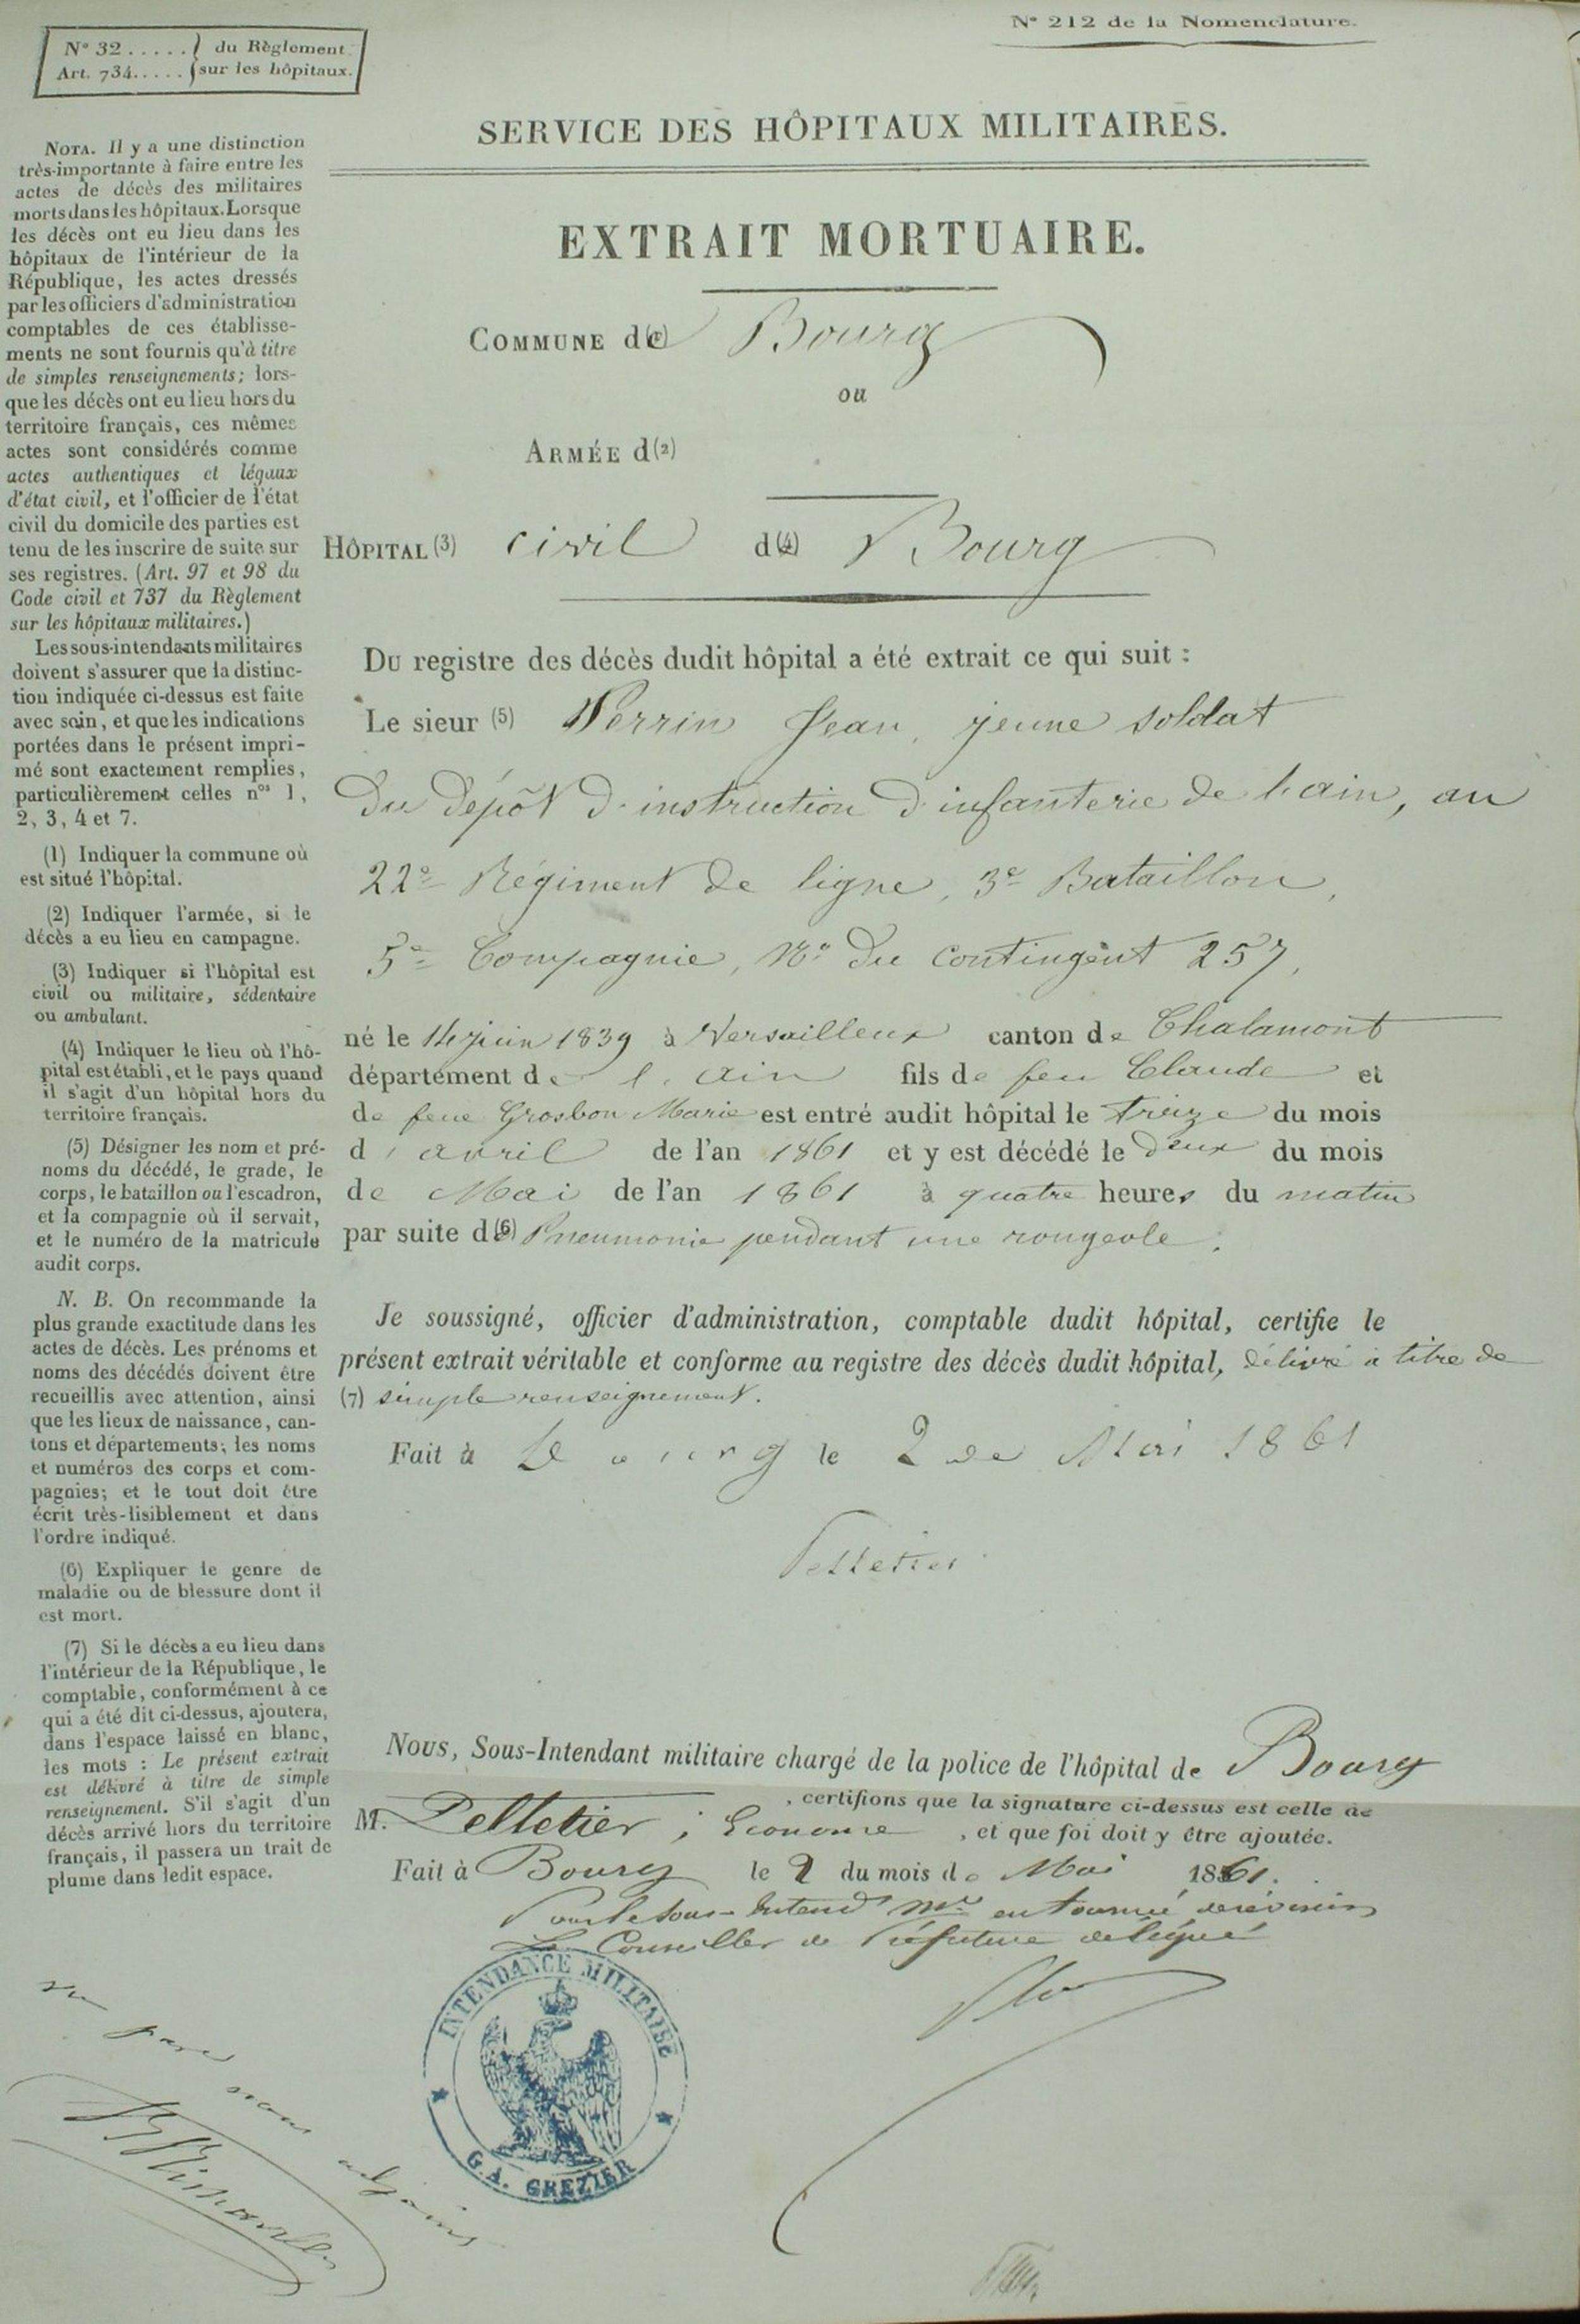 N° 212 de la Nomenclature.
N° 32..... du Règlement
Art. 734..... sur les hôpitaux.
SERVICE DES HÔPITAUX MILITAIRES.
EXTRAIT MORTUAIRE.
COMMUNE de (1) Bourg
ou
ARMÉE d(2)
HÔPITAL (3) civil de (4) Bourg
Du registre des décès dudit hôpital a été extrait ce qui suit :
Le sieur (5) Perrin Jean, jeune soldat
du dépôt d'instruction d'infanterie de l'ain, au
22e Régiment de ligne, 3e Bataillon,
5e Compagnie, N° du contingent 257,
né le 14 juin 1839 à Versailleux canton de Chalamont
département de l'ain fils de feu Claude et
de feue Grosbon Marie est entré audit hôpital le treize du mois
d'avril de l'an 1861 et y est décédé le deux du mois
de Mai de l'an 1861 à quatre heures du matin
par suite de (6) Pneumonie pendant une rougeole.
Je soussigné, officier d'administration, comptable dudit hôpital, certifie le
présent extrait véritable et conforme au registre des décès dudit hôpital, délivré à titre de
(7) simple renseignement.
Fait à Bourg le 2 de Mai 1861
Pelletier
Nous, Sous-Intendant militaire chargé de la police de l'hôpital de Bourg
, certifions que la signature ci-dessus est celle de
M. Pelletier, Econome, et que foi doit y être ajoutée.
Fait à Bourg le 2 du mois de Mai 1861.
Pour le sous-Intendt mre en tournée de révision
Le Conseiller de Préfecture délégué
INTENDANCE MILITAIRE
G.A. GREZIER
NOTA. Il y a une distinction
très-importante à faire entre les
actes de décès des militaires
morts dans les hôpitaux. Lorsque
les décès ont eu lieu dans les
hôpitaux de l'intérieur de la
République, les actes dressés
par les officiers d'administration
comptables de ces établisse-
ments ne sont fournis qu'à titre
de simples renseignements; lors-
que les décès ont eu lieu hors du
territoire français, ces mêmes
actes sont considérés comme
actes authentiques et légaux
d'état civil, et l'officier de l'état
civil du domicile des parties est
tenu de les inscrire de suite sur
ses registres. (Art. 97 et 98 du
Code civil et 737 du Règlement
sur les hôpitaux militaires.)
Les sous-intendants militaires
doivent s'assurer que la distinc-
tion indiquée ci-dessus est faite
avec soin, et que les indications
portées dans le présent impri-
mé sont exactement remplies,
particulièrement celles nos 1,
2, 3, 4 et 7.
(1) Indiquer la commune où
est situé l'hôpital.
(2) Indiquer l'armée, si le
décès a eu lieu en campagne.
(3) Indiquer si l'hôpital est
civil ou militaire, sédentaire
ou ambulant.
(4) Indiquer le lieu où l'hô-
pital est établi, et le pays quand
il s'agit d'un hôpital hors du
territoire français.
(5) Désigner les nom et pré-
noms du décédé, le grade, le
corps, le bataillon ou l'escadron,
et la compagnie où il servait,
et le numéro de la matricule
audit corps.
N. B. On recommande la
plus grande exactitude dans les
actes de décès. Les prénoms et
noms des décédés doivent être
recueillis avec attention, ainsi
que les lieux de naissance, can-
tons et départements; les noms
et numéros des corps et com-
pagnies; et le tout doit être
écrit très-lisiblement et dans
l'ordre indiqué.
(6) Expliquer le genre de
maladie ou de blessure dont il
est mort.
(7) Si le décès a eu lieu dans
l'intérieur de la République, le
comptable, conformément à ce
qui a été dit ci-dessus, ajoutera,
dans l'espace laissé en blanc,
les mots : Le présent extrait
est délivré à titre de simple
renseignement. S'il s'agit d'un
décès arrivé hors du territoire
français, il passera un trait de
plume dans ledit espace.
vu par nous adjoint